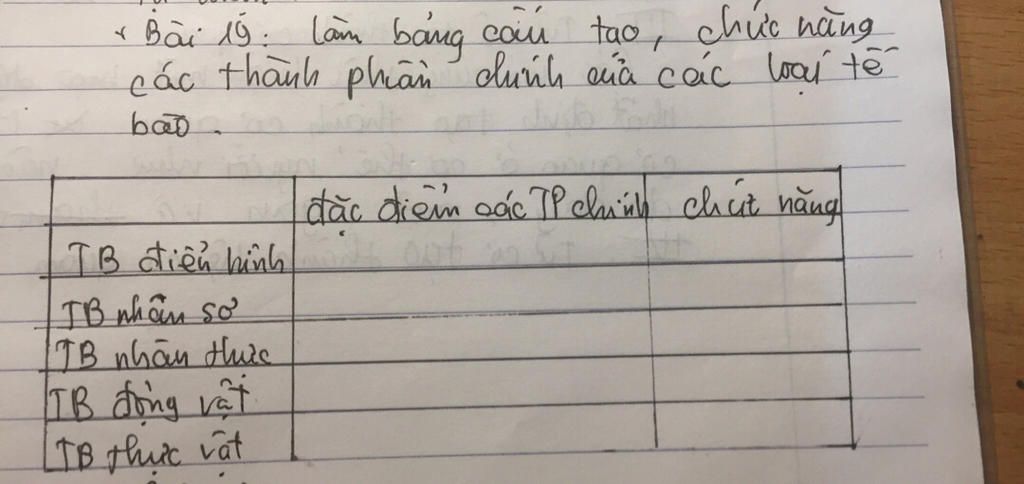 Bài 19: làm bảng cấu tạo, chức năng
các thành phần chính của các loại tế
bào.
đặc điểm các TP chính chức năng
TB điển hình
TB nhân sơ
TB nhân thực
TB động vật
TB thực vật